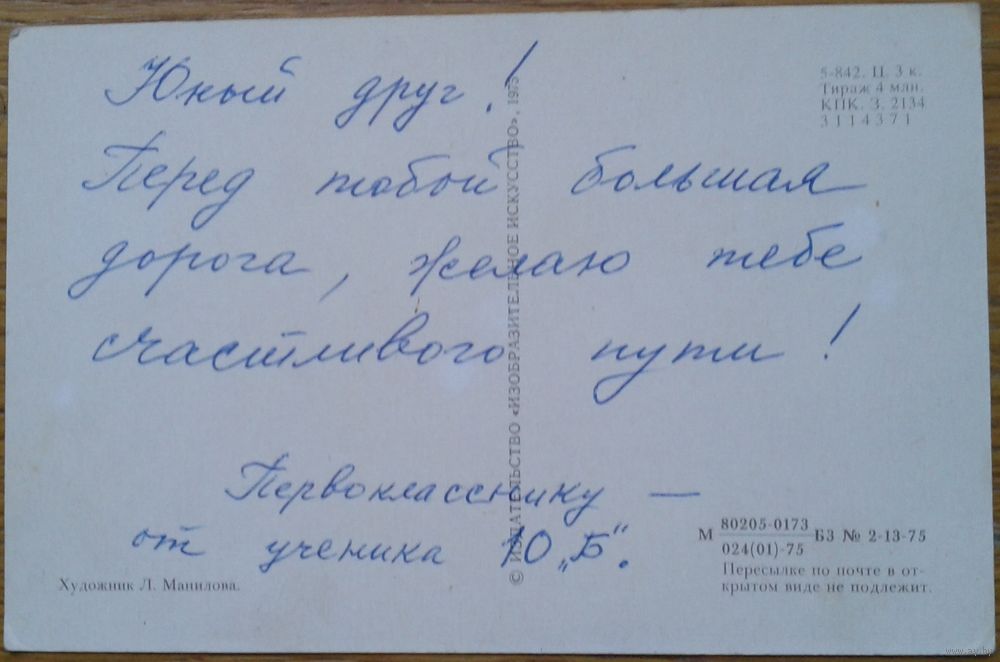 Юный друг!
Перед тобой большая
дорога, желаю тебе
счастливого пути!
Первокласснику —
от ученика 10 „Б“.
Художник Л. Манилова.
© ИЗДАТЕЛЬСТВО «ИЗОБРАЗИТЕЛЬНОЕ ИСКУССТВО», 1975
5-842. Ц. 3 к.
Тираж 4 млн.
КПК. З. 2134
3114371
М 80205-0173 БЗ № 2-13-75
024(01)-75
Пересылке по почте в от-
крытом виде не подлежит.
www.ay.by